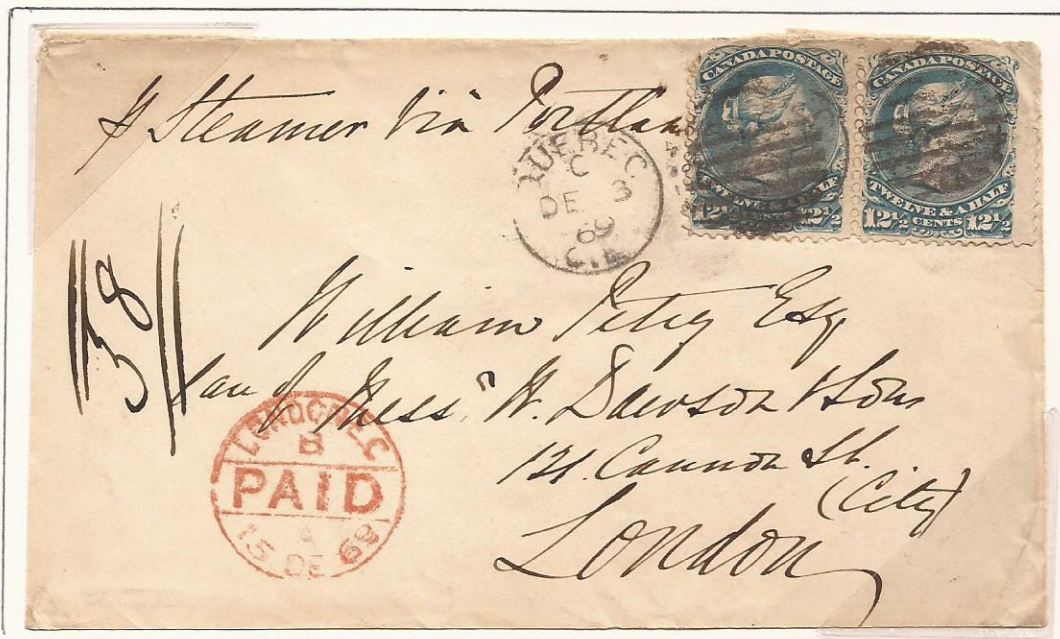 ℘ Steamer Via Portland
CANADA POSTAGE
TWELVE & A HALF
CENTS
12½ 12½
CANADA POSTAGE
TWELVE & A HALF
CENTS
12½ 12½
QUEBEC
C
DE 3
69
38
William Petry Esq
Care of Mess" W. Dawson & Sons
121. Cannon St.
(City)
London
LONDON E.C
B
PAID
15 DE 69